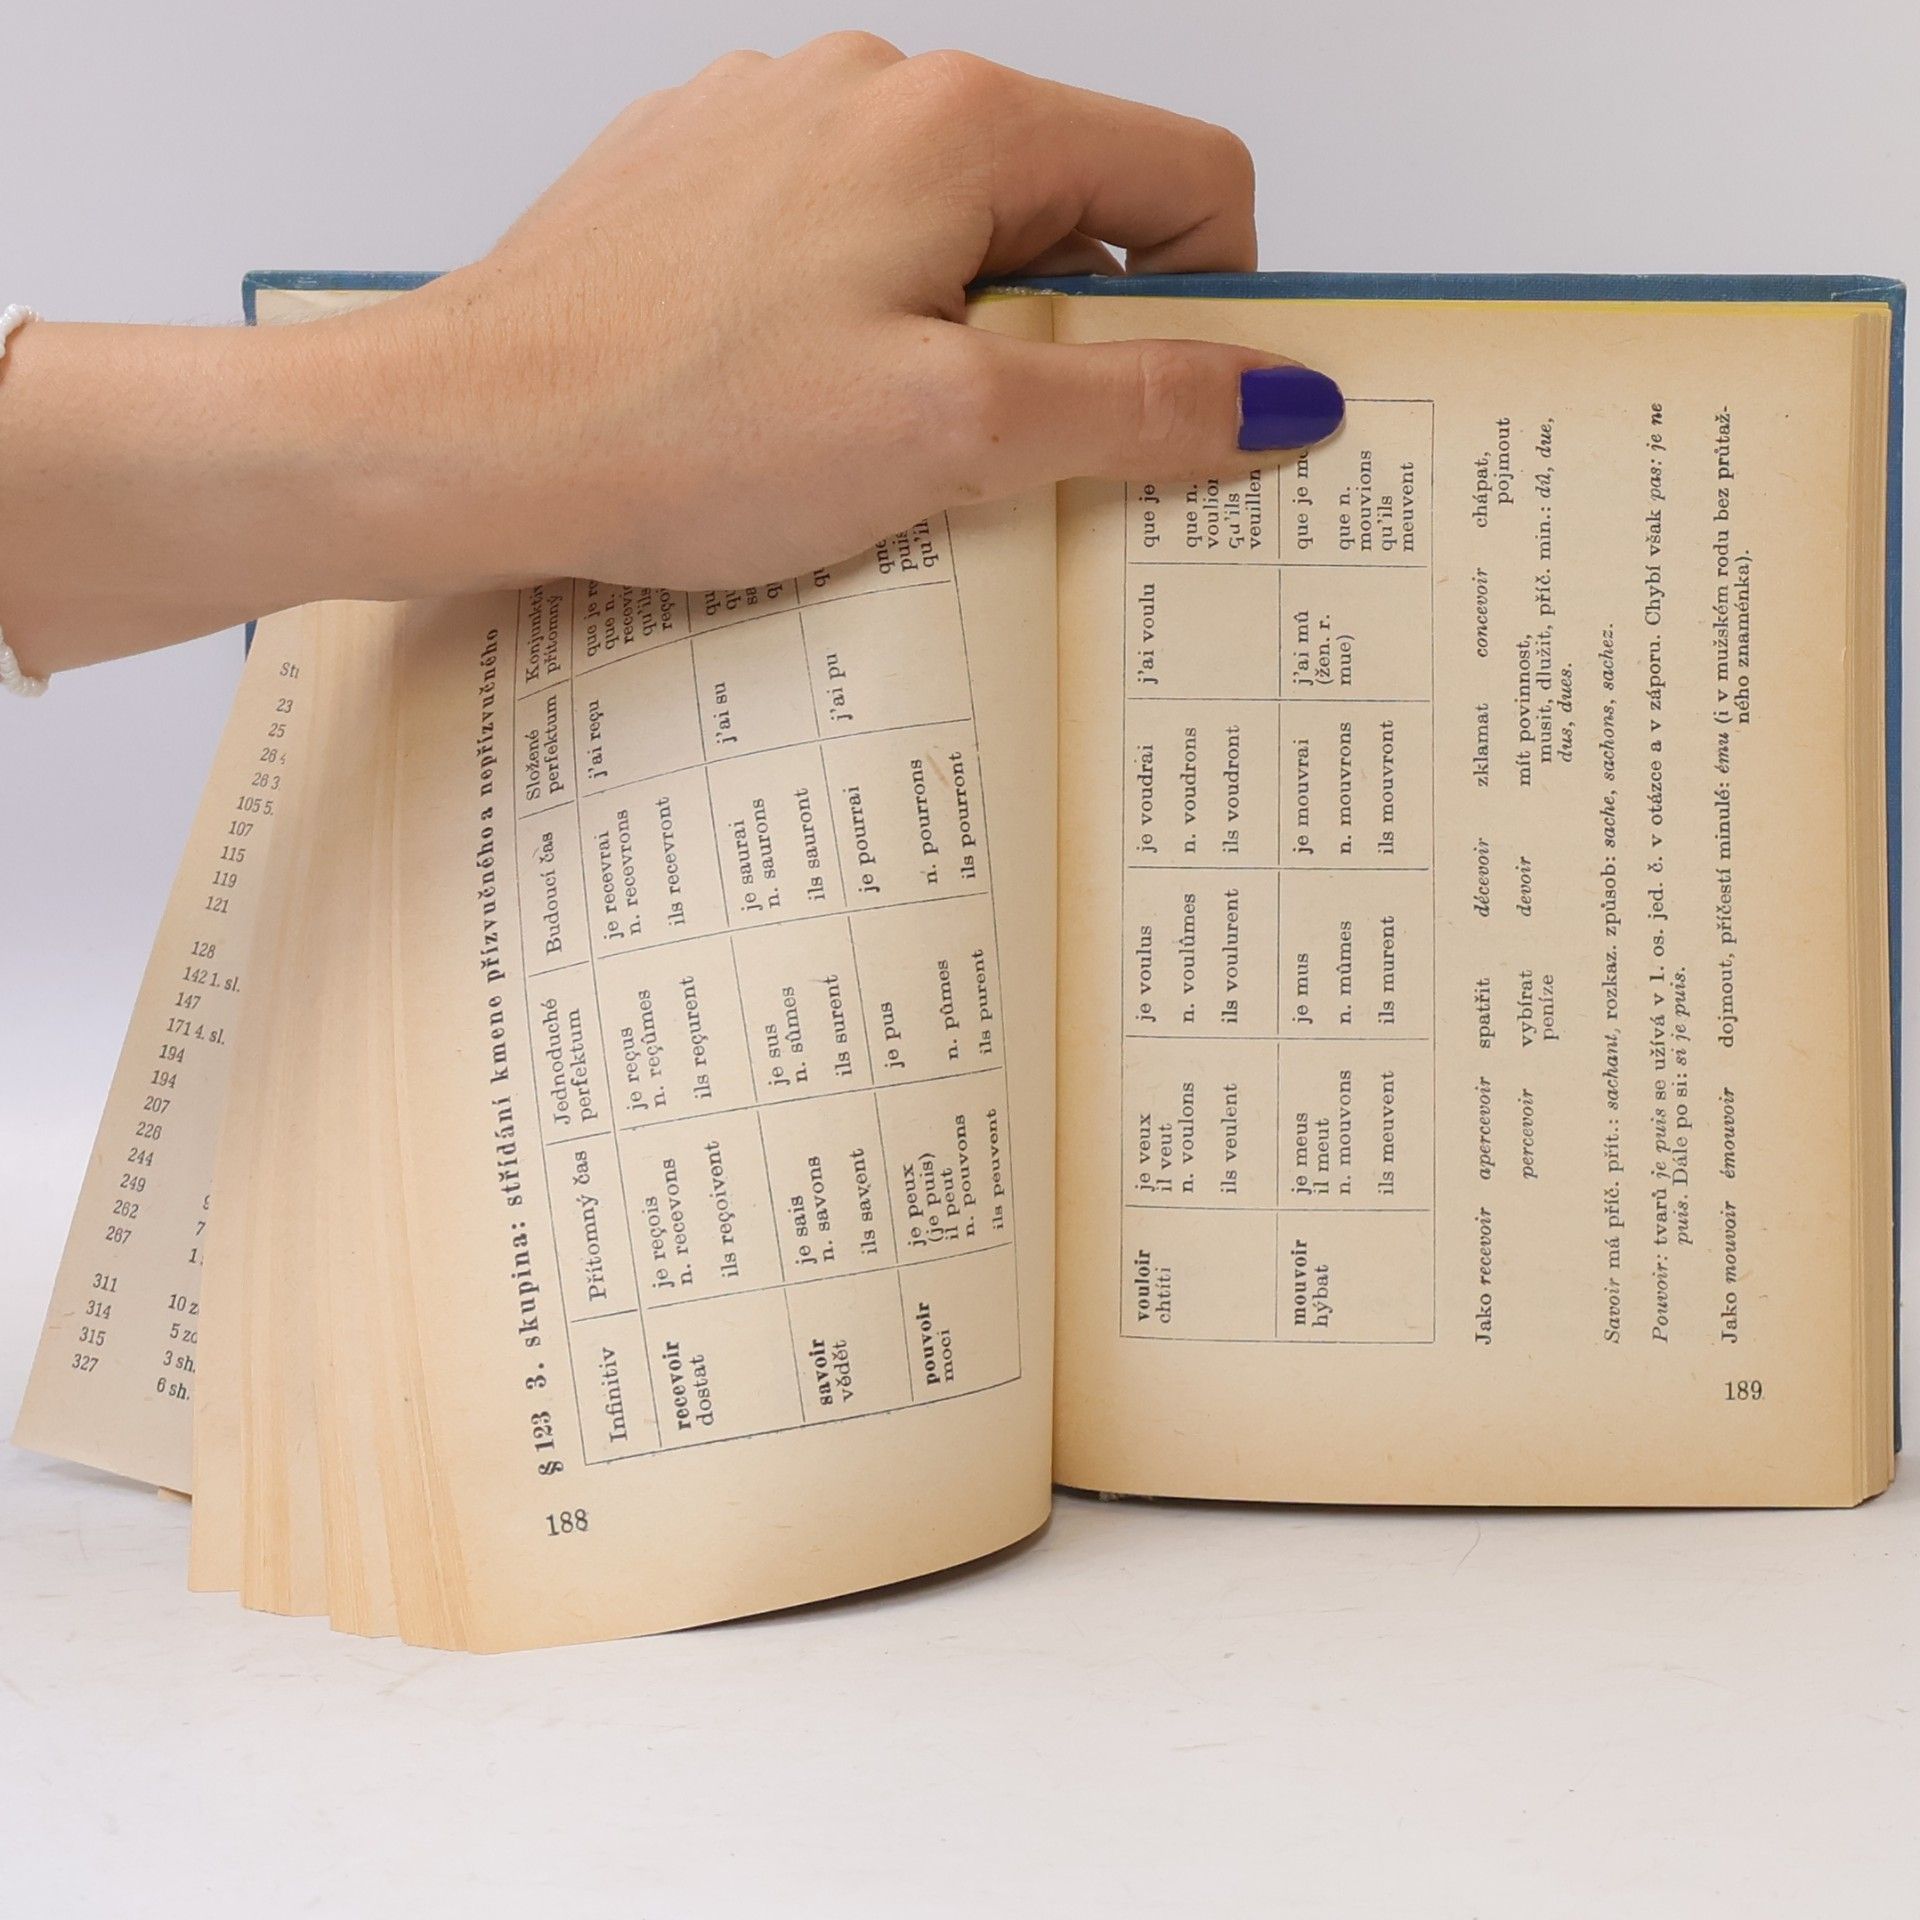 Sti
23
25
26 4
26 3
105 5.
107
115
119
121
128
142 1. sl.
147
171 4. sl.
194
194
207
226
244
249
262
267
311
314
315
327
10
5
3 sh.
6 sh.
188
§ 123 3. skupina: střídání kmene přízvučného a nepřízvučného
Infinitiv
Přítomný čas
Jednoduché
perfektum
Budoucí čas
Složené
perfektum
Konjunktiv
přítomný
recevoir
dostat
je reçois
n. recevons
ils reçoivent
je reçus
n. reçûmes
ils reçurent
je recevrai
n. recevrons
ils recevront
j'ai reçu
que je
que n.
qu'ils
savoir
vědět
je sais
n. savons
ils savent
je sus
n. sûmes
ils surent
je saurai
n. saurons
ils sauront
j'ai su
pouvoir
moci
je peux
(je puis)
il peut
n. pouvons
ils peuvent
je pus
n. pûmes
ils purent
je pourrai
n. pourrons
ils pourront
j'ai pu
vouloir
chtíti
je veux
il veut
n. voulons
ils veulent
je voulus
n. voulûmes
ils voulurent
je voudrai
n. voudrons
ils voudront
j'ai voulu
que je
que n.
qu'ils
mouvoir
hýbat
je meus
il meut
n. mouvons
ils meuvent
je mus
n. mûmes
ils murent
je mouvrai
n. mouvrons
ils mouvront
j'ai mû
(žen. r.
mue)
que je
que n.
mouvions
qu'ils
meuvent
Jako recevoir apercevoir spatřit décevoir zklamat concevoir chápat,
pojmout
percevoir vybírat devoir mít povinnost,
peníze musit, dlužit, příč. min.: dû, due,
dus, dues.
Savoir má příč. přít.: sachant, rozkaz. způsob: sache, sachons, sachez.
Pouvoir: tvarů je puis se užívá v 1. os. jed. č. v otázce a v záporu. Chybí však pas: je ne
puis. Dále po si: si je puis.
Jako mouvoir émouvoir dojmout, příčestí minulé: ému (i v mužském rodu bez průtaž-
ného znaménka).
189